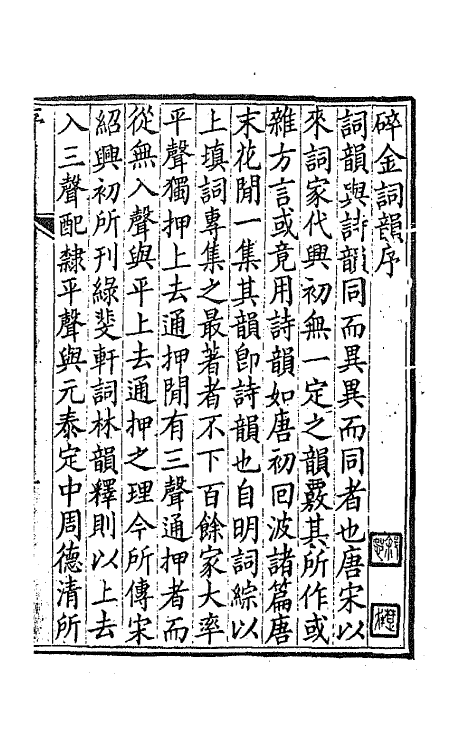 碎金詞韻序
詞韻與詩韻同而異異而同者也唐宋以
來詞家代興初無一定之韻覈其所作或
雜方言或竟用詩韻如唐初回波諸篇唐
末花間一集其韻卽詩韻也自明詞綜以
上填詞專集之最著者不下百餘家大率
平聲獨押上去通押間有三聲通押者而
從無入聲與平上去通押之理今所傳宋
紹興初所刊綠斐軒詞林韻釋則以上去
入三聲配隸平聲與元泰定中周德清所